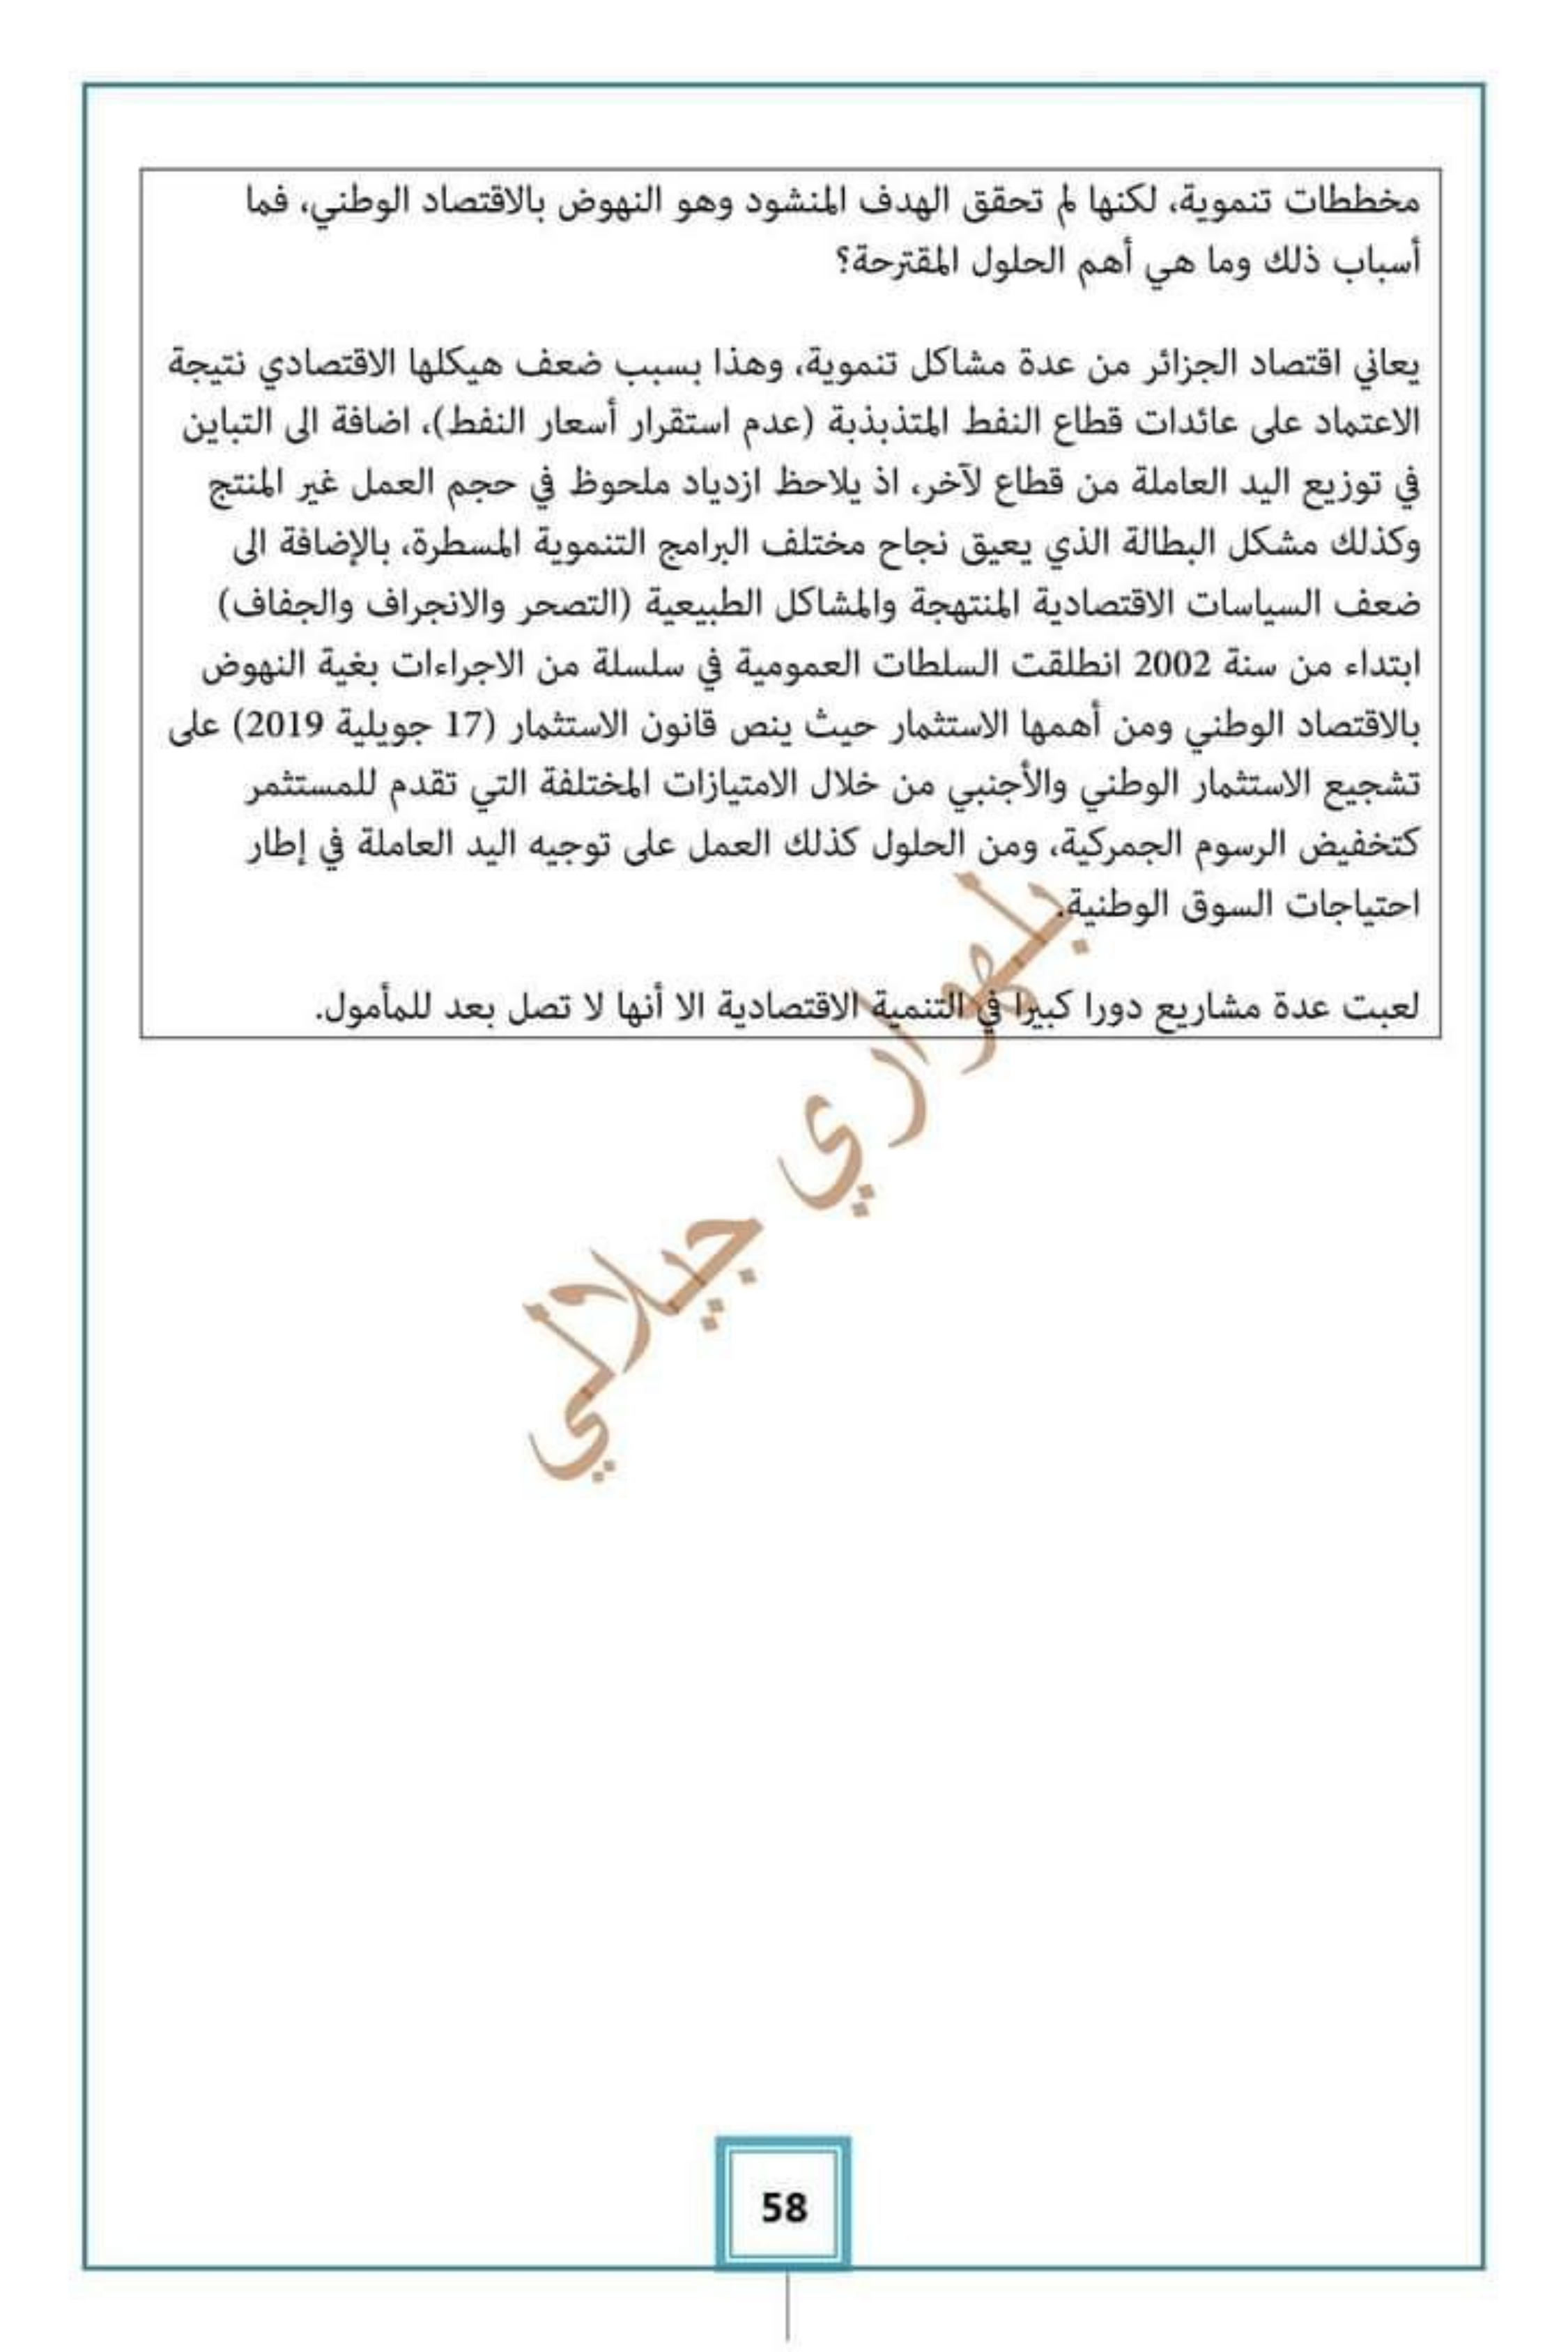 مخططات تنموية، لكنها لم تحقق الهدف المنشود وهو النهوض بالاقتصاد الوطني، فما
أسباب ذلك وما هي أهم الحلول المقترحة؟
يعاني اقتصاد الجزائر من عدة مشاكل تنموية، وهذا بسبب ضعف هيكلها الاقتصادي نتيجة
الاعتماد على عائدات قطاع النفط المتذبذبة (عدم استقرار أسعار النفط)، اضافة الى التباين
في توزيع اليد العاملة من قطاع لآخر، اذ يلاحظ ازدياد ملحوظ في حجم العمل غير المنتج
وكذلك مشكل البطالة الذي يعيق نجاح مختلف البرامج التنموية المسطرة، بالإضافة الى
ضعف السياسات الاقتصادية المنتهجة والمشاكل الطبيعية (التصحر والانجراف والجفاف)
ابتداء من سنة 2002 انطلقت السلطات العمومية في سلسلة من الاجراءات بغية النهوض
بالاقتصاد الوطني ومن أهمها الاستثمار حيث ينص قانون الاستثمار (17 جويلية 2019) على
تشجيع الاستثمار الوطني والأجنبي من خلال الامتيازات المختلفة التي تقدم للمستثمر
كتخفيض الرسوم الجمركية، ومن الحلول كذلك العمل على توجيه اليد العاملة في إطار
احتياجات السوق الوطنية.
لعبت عدة مشاريع دورا كبيرا في التنمية الاقتصادية الا أنها لا تصل بعد للمأمول.
بلهواري جيلالي
58